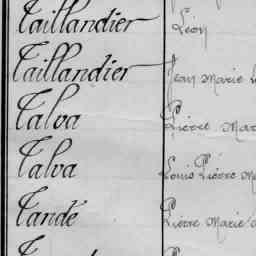 Taillandier Léon
Taillandier Jean Marie
Talva Pierre Mar
Talva Louis Pierre Ma
Tandé Pierre Marie